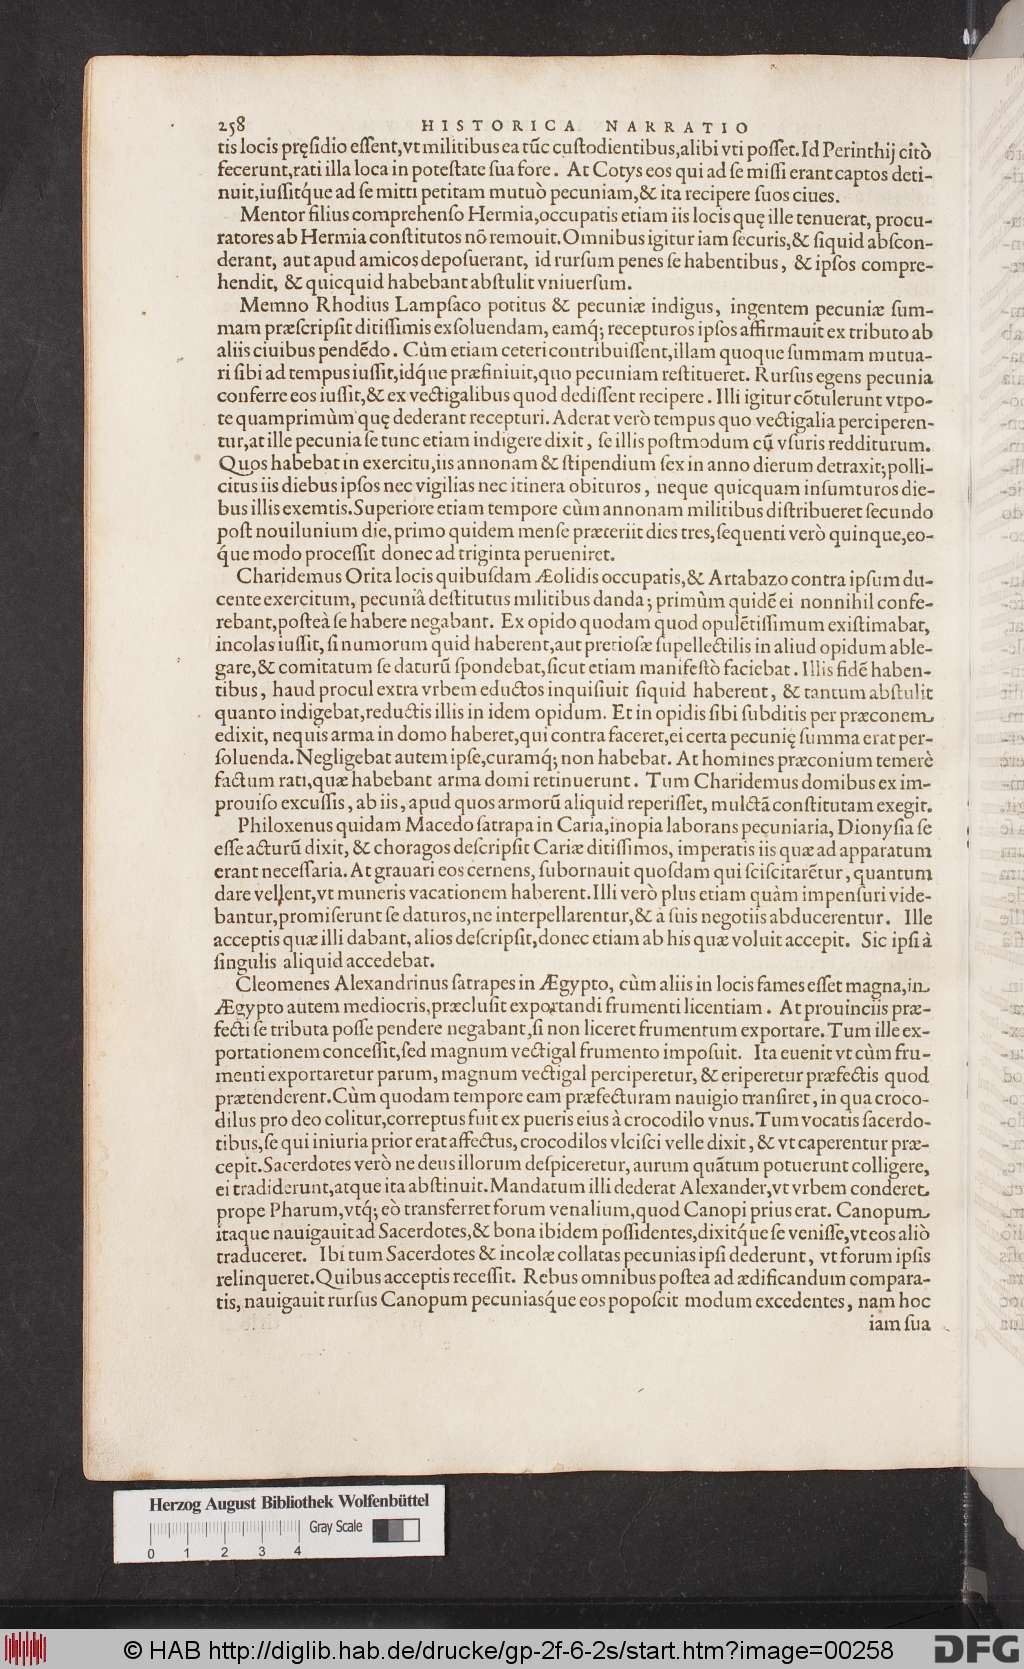 258 HISTORICA NARRATIO
tis locis pręſidio eſſent,vt militibus ea tūc cuſtodientibus,alibi vti poſſet. Id Perinthij citò
fecerunt,rati illa loca in poteſtate ſua fore. At Cotys eos qui ad ſe miſſi erant captos deti-
nuit,iuſſitq́ue ad ſe mitti petitam mutuò pecuniam,& ita recipere ſuos ciues.
Mentor filius comprehenſo Hermia,occupatis etiam iis locis quę ille tenuerat, procu-
ratores ab Hermia conſtitutos nō remouit. Omnibus igitur iam ſecuris,& ſiquid abſcon-
derant, aut apud amicos depoſuerant, id rurſum penes ſe habentibus, & ipſos compre-
hendit, & quicquid habebant abſtulit vniuerſum.
Memno Rhodius Lampſaco potitus & pecuniæ indigus, ingentem pecuniæ ſum-
mam præſcripſit ditiſſimis exſoluendam, eamq́; recepturos ipſos affirmauit ex tributo ab
aliis ciuibus pendēdo. Cùm etiam ceteri contribuiſſent,illam quoque ſummam mutua-
ri ſibi ad tempus iuſſit,idq́ue præfiniuit,quo pecuniam reſtitueret. Rurſus egens pecunia
conferre eos iuſſit,& ex vectigalibus quod dediſſent recipere. Illi igitur cōtulerunt vtpo-
te quamprimùm quę dederant recepturi. Aderat verò tempus quo vectigalia perciperen-
tur,at ille pecunia ſe tunc etiam indigere dixit, ſe illis poſtmodum cū vſuris redditurum.
Quos habebat in exercitu,iis annonam & ſtipendium ſex in anno dierum detraxit;polli-
citus iis diebus ipſos nec vigilias nec itinera obituros, neque quicquam inſumturos die-
bus illis exemtis. Superiore etiam tempore cùm annonam militibus diſtribueret ſecundo
poſt nouilunium die, primo quidem menſe præteriit dies tres, ſequenti verò quinque,eo-
q́ue modo proceſſit donec ad triginta perueniret.
Charidemus Orita locis quibuſdam Æolidis occupatis,& Artabazo contra ipſum du-
cente exercitum, pecuniâ deſtitutus militibus danda; primùm quidē ei nonnihil confe-
rebant,poſteà ſe habere negabant. Ex opido quodam quod opulētiſſimum exiſtimabat,
incolas iuſſit, ſi numorum quid haberent,aut pretioſæ ſupellectilis in aliud opidum able-
gare,& comitatum ſe daturū ſpondebat,ſicut etiam manifeſtò faciebat. Illis fidē haben-
tibus, haud procul extra vrbem eductos inquiſiuit ſiquid haberent, & tantum abſtulit
quanto indigebat,reductis illis in idem opidum. Et in opidis ſibi ſubditis per præconem
edixit, nequis arma in domo haberet,qui contra faceret,ei certa pecunię ſumma erat per-
ſoluenda. Negligebat autem ipſe,curamq́; non habebat. At homines præconium temerè
factum rati,quæ habebant arma domi retinuerunt. Tum Charidemus domibus ex im-
prouiſo excuſſis, ab iis, apud quos armorū aliquid reperiſſet, mulctā conſtitutam exegit.
Philoxenus quidam Macedo ſatrapa in Caria,inopia laborans pecuniaria, Dionyſia ſe
eſſe acturū dixit, & choragos deſcripſit Cariæ ditiſſimos, imperatis iis quæ ad apparatum
erant neceſſaria. At grauari eos cernens, ſubornauit quoſdam qui ſciſcitarētur, quantum
dare vellent,vt muneris vacationem haberent. Illi verò plus etiam quàm impenſuri vide-
bantur,promiſerunt ſe daturos,ne interpellarentur,& à ſuis negotiis abducerentur. Ille
acceptis quæ illi dabant, alios deſcripſit,donec etiam ab his quæ voluit accepit. Sic ipſi à
ſingulis aliquid accedebat.
Cleomenes Alexandrinus ſatrapes in Ægypto, cùm aliis in locis fames eſſet magna,in
Ægypto autem mediocris,præcluſit exportandi frumenti licentiam. At prouinciis præ-
fecti ſe tributa poſſe pendere negabant,ſi non liceret frumentum exportare. Tum ille ex-
portationem conceſſit,ſed magnum vectigal frumento impoſuit. Ita euenit vt cùm fru-
menti exportaretur parum, magnum vectigal perciperetur, & eriperetur præfectis quod
prætenderent. Cùm quodam tempore eam præfecturam nauigio tranſiret, in qua croco-
dilus pro deo colitur,correptus fuit ex pueris eius à crocodilo vnus. Tum vocatis ſacerdo-
tibus,ſe qui iniuria prior erat affectus, crocodilos vlciſci velle dixit, & vt caperentur præ-
cepit. Sacerdotes verò ne deus illorum deſpiceretur, aurum quātum potuerunt colligere,
ei tradiderunt,atque ita abſtinuit. Mandatum illi dederat Alexander,vt vrbem conderet
prope Pharum,vtq́; eò transferret forum venalium,quod Canopi prius erat. Canopum
itaque nauigauit ad Sacerdotes,& bona ibidem poſſidentes,dixitq́ue ſe veniſſe,vt eos aliò
traduceret. Ibi tum Sacerdotes & incolæ collatas pecunias ipſi dederunt, vt forum ipſis
relinqueret. Quibus acceptis receſſit. Rebus omnibus poſtea ad ædificandum compara-
tis, nauigauit rurſus Canopum pecuniasq́ue eos popoſcit modum excedentes, nam hoc
iam ſua
Herzog August Bibliothek Wolfenbüttel
Gray Scale
0 1 2 3 4
© HAB http://diglib.hab.de/drucke/gp-2f-6-2s/start.htm?image=00258
DFG